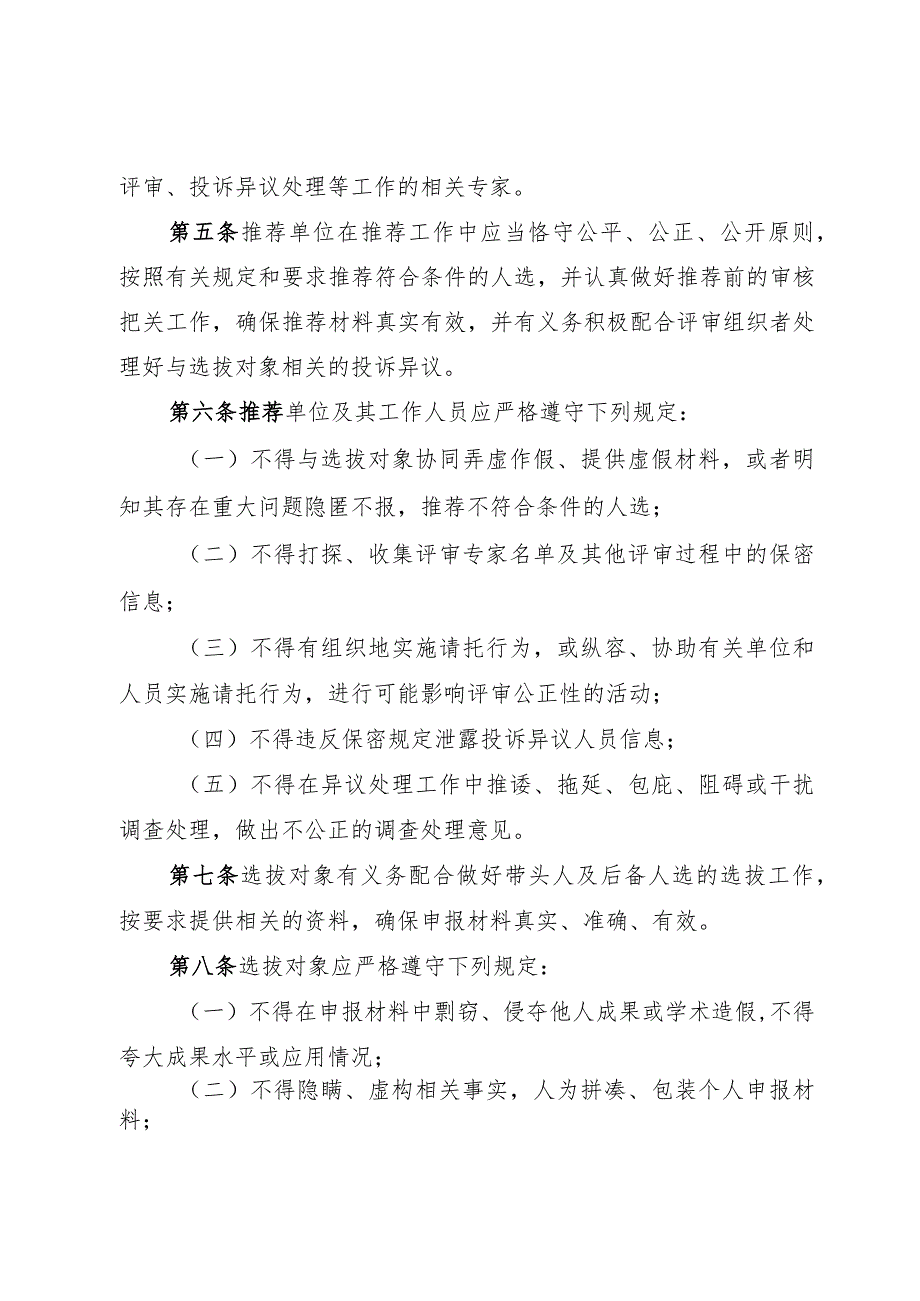 评审、投诉异议处理等工作的相关专家。
第五条推荐单位在推荐工作中应当恪守公平、公正、公开原则,
按照有关规定和要求推荐符合条件的人选，并认真做好推荐前的审核
把关工作，确保推荐材料真实有效，并有义务积极配合评审组织者处
理好与选拔对象相关的投诉异议。
第六条推荐单位及其工作人员应严格遵守下列规定：
（一）不得与选拔对象协同弄虚作假、提供虚假材料，或者明
知其存在重大问题隐匿不报，推荐不符合条件的人选；
（二）不得打探、收集评审专家名单及其他评审过程中的保密
信息；
（三）不得有组织地实施请托行为，或纵容、协助有关单位和
人员实施请托行为，进行可能影响评审公正性的活动；
（四）不得违反保密规定泄露投诉异议人员信息；
（五）不得在异议处理工作中推诿、拖延、包庇、阻碍或干扰
调查处理，做出不公正的调查处理意见。
第七条选拔对象有义务配合做好带头人及后备人选的选拔工作,
按要求提供相关的资料，确保申报材料真实、准确、有效。
第八条选拔对象应严格遵守下列规定：
（一）不得在申报材料中剽窃、侵夺他人成果或学术造假,不得
夸大成果水平或应用情况；
（二）不得隐瞒、虚构相关事实，人为拼凑、包装个人申报材
料；